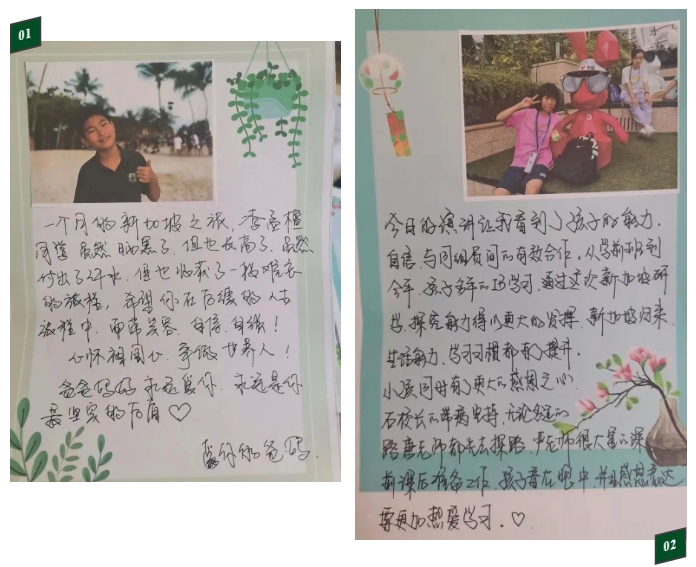 01
一个月的新加坡之旅,李孟檀
同学虽然晒黑了,但也长高了,虽然
付出了汗水,但也收获了一段难忘
的旅程,希望你在今后的人生
旅程中,面带笑容、自信、自强!
心怀祖国心,争做世界人!
爸爸妈妈永远爱你,永远是你
最坚实的后盾♡
爱你的爸妈.
今日的演讲让我看到了孩子的能力,
自信,与同组员间的有效合作,从学前班到
今年,孩子多年的IB学习,通过这次新加坡研
学,探究能力得以更大的发挥,新加坡归来,
生活能力、学习习惯都有了提升.
小孩同时有了更大的感恩之心.
石校长的带病坚持,无论多远的
路唐老师都先去探路,尹老师很大量的课
前课后准备工作,孩子看在眼中,并且感恩表达
要更加热爱学习.♡
02